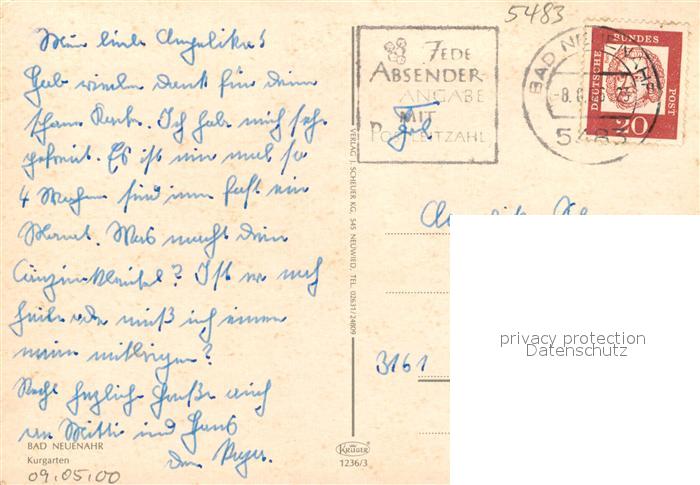 Meine liebe Angelika!
Hab vielen Dank für deine
schöne Karte. Ich habe mich sehr
gefreut. Es ist nun mal so
4 Wochen sind nun fast ein
Monat. Was macht dein
? Ist er noch
heile oder muß ich einen
neuen mitbringen?
Recht herzliche Grüße auch
an Mutti und Hans
dein
BAD NEUENAHR
Kurgarten
09.05.00
VERLAG J. SCHEUER KG. 545 NEUWIED, TEL. 02631/24809
KRÜGER
1236/3
5483
JEDE
ABSENDER
ANGABE
MIT
POSTLEITZAHL
BAD NEUENAHR
-8.6.
5483
DEUTSCHE BUNDESPOST
20
Frl
3161
privacy protection
Datenschutz